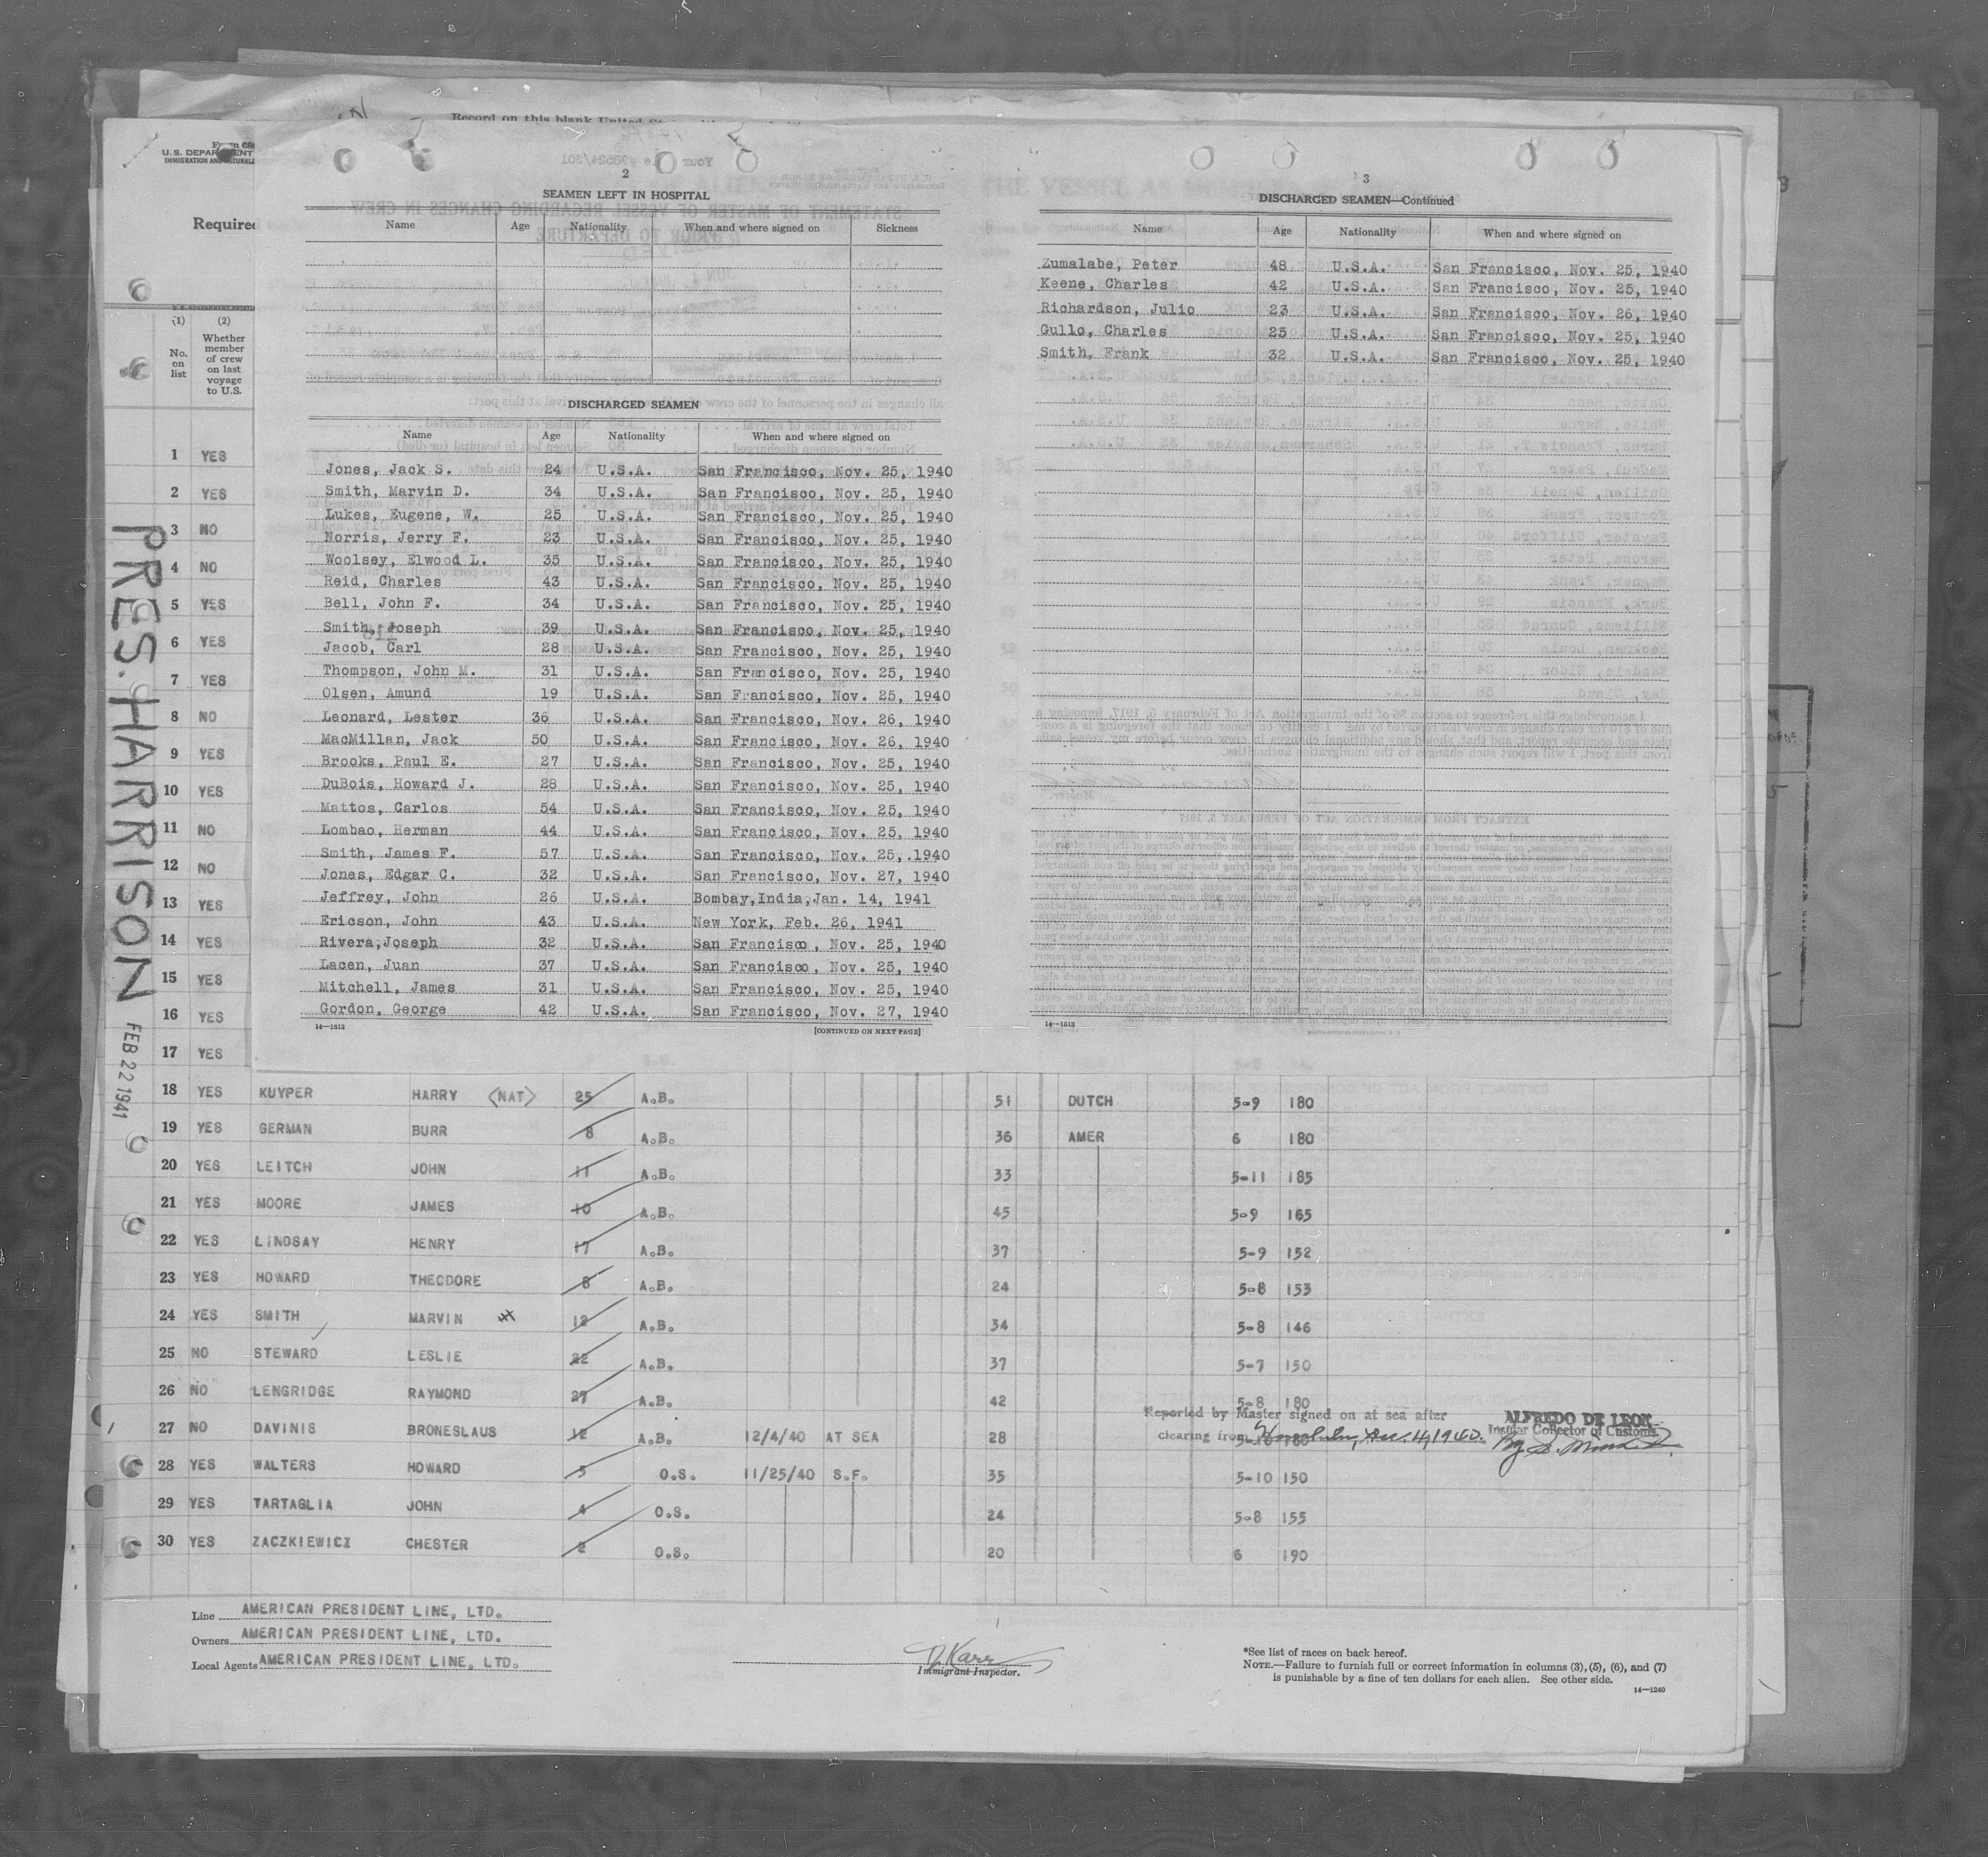 Record on this blank United
U.S. DEPARTMENT
IMMIGRATION AND NATURAL
Required
PRES. HARRISON FEB 22 1941
(1) (2)
No. on list
Whether member of crew on last voyage to U.S.
1 YES
2 YES
3 NO
4 NO
5 YES
6 YES
7 YES
8 NO
9 YES
10 YES
11 NO
12 NO
13 YES
14 YES
15 YES
16 YES
17 YES
2
SEAMEN LEFT IN HOSPITAL
Name Age Nationality When and where signed on Sickness
DISCHARGED SEAMEN
Name Age Nationality When and where signed on
Jones, Jack S. 24 U.S.A. San Francisco, Nov. 25, 1940
Smith, Marvin D. 34 U.S.A. San Francisco, Nov. 25, 1940
Lukes, Eugene, W. 25 U.S.A. San Francisco, Nov. 25, 1940
Norris, Jerry F. 23 U.S.A. San Francisco, Nov. 25, 1940
Woolsey, Elwood L. 35 U.S.A. San Francisco, Nov. 25, 1940
Reid, Charles 43 U.S.A. San Francisco, Nov. 25, 1940
Bell, John F. 34 U.S.A. San Francisco, Nov. 25, 1940
Smith, Joseph 39 U.S.A. San Francisco, Nov. 25, 1940
Jacob, Carl 28 U.S.A. San Francisco, Nov. 25, 1940
Thompson, John M. 31 U.S.A. San Francisco, Nov. 25, 1940
Olsen, Amund 19 U.S.A. San Francisco, Nov. 25, 1940
Leonard, Lester 36 U.S.A. San Francisco, Nov. 26, 1940
MacMillan, Jack 50 U.S.A. San Francisco, Nov. 26, 1940
Brooks, Paul E. 27 U.S.A. San Francisco, Nov. 25, 1940
DuBois, Howard J. 28 U.S.A. San Francisco, Nov. 25, 1940
Mattos, Carlos 54 U.S.A. San Francisco, Nov. 25, 1940
Lombao, Herman 44 U.S.A. San Francisco, Nov. 25, 1940
Smith, James F. 57 U.S.A. San Francisco, Nov. 25, 1940
Jones, Edgar C. 32 U.S.A. San Francisco, Nov. 27, 1940
Jeffrey, John 26 U.S.A. Bombay, India, Jan. 14, 1941
Ericson, John 43 U.S.A. New York, Feb. 26, 1941
Rivera, Joseph 32 U.S.A. San Francisco, Nov. 25, 1940
Lacen, Juan 37 U.S.A. San Francisco, Nov. 25, 1940
Mitchell, James 31 U.S.A. San Francisco, Nov. 25, 1940
Gordon, George 42 U.S.A. San Francisco, Nov. 27, 1940
14—1613 [CONTINUED ON NEXT PAGE]
3
DISCHARGED SEAMEN—Continued
Name Age Nationality When and where signed on
Zumalabe, Peter 48 U.S.A. San Francisco, Nov. 25, 1940
Keene, Charles 42 U.S.A. San Francisco, Nov. 25, 1940
Richardson, Julio 23 U.S.A. San Francisco, Nov. 26, 1940
Gullo, Charles 25 U.S.A. San Francisco, Nov. 25, 1940
Smith, Frank 32 U.S.A. San Francisco, Nov. 25, 1940
14—1613
18 YES KUYPER HARRY (NAT) 25 A.B. 51 DUTCH 5-9 180
19 YES GERMAN BURR 8 A.B. 36 AMER 6 180
20 YES LEITCH JOHN 11 A.B. 33 5-11 185
21 YES MOORE JAMES 10 A.B. 45 5-9 165
22 YES LINDSAY HENRY 17 A.B. 37 5-9 152
23 YES HOWARD THEODORE 8 A.B. 24 5-8 153
24 YES SMITH MARVIN 12 A.B. 34 5-8 146
25 NO STEWARD LESLIE 22 A.B. 37 5-7 150
26 NO LENGRIDGE RAYMOND 27 A.B. 42 5-8 180
Reported by Master signed on at sea after
clearing from Honolulu, Dec. 4, 1940.
ALFREDO DE LEON
Insular Collector of Customs.
27 NO DAVINIS BRONESLAUS 12 A.B. 12/4/40 AT SEA 28
28 YES WALTERS HOWARD 5 O.S. 11/25/40 S.F. 35 5-10 150
29 YES TARTAGLIA JOHN 4 O.S. 24 5-8 155
30 YES ZACZKIEWICZ CHESTER 2 O.S. 20 6 190
Line AMERICAN PRESIDENT LINE, LTD.
Owners AMERICAN PRESIDENT LINE, LTD.
Local Agents AMERICAN PRESIDENT LINE, LTD.
Karr
Immigrant Inspector.
*See list of races on back hereof.
NOTE.—Failure to furnish full or correct information in columns (3), (5), (6), and (7)
is punishable by a fine of ten dollars for each alien. See other side.
14—1240